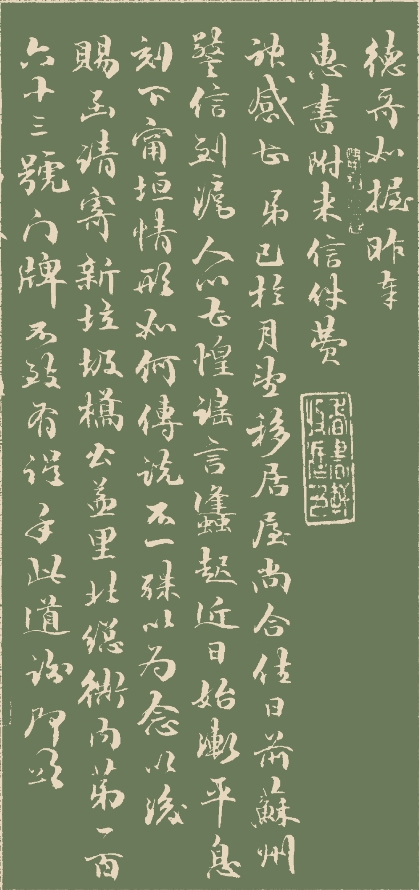 德哥如握昨奉
惠書附來信件費
神感甚弟已於月望移居屋尚合住日前蘇州
警信到滬人心甚惶謠言蠭起近日始漸平息
刻下甯垣情形如何傳說不一殊以為念以後
賜函請寄新垃圾橋公益里北總衖內第一百
六十三號門牌不致有誤手此道謝即頌